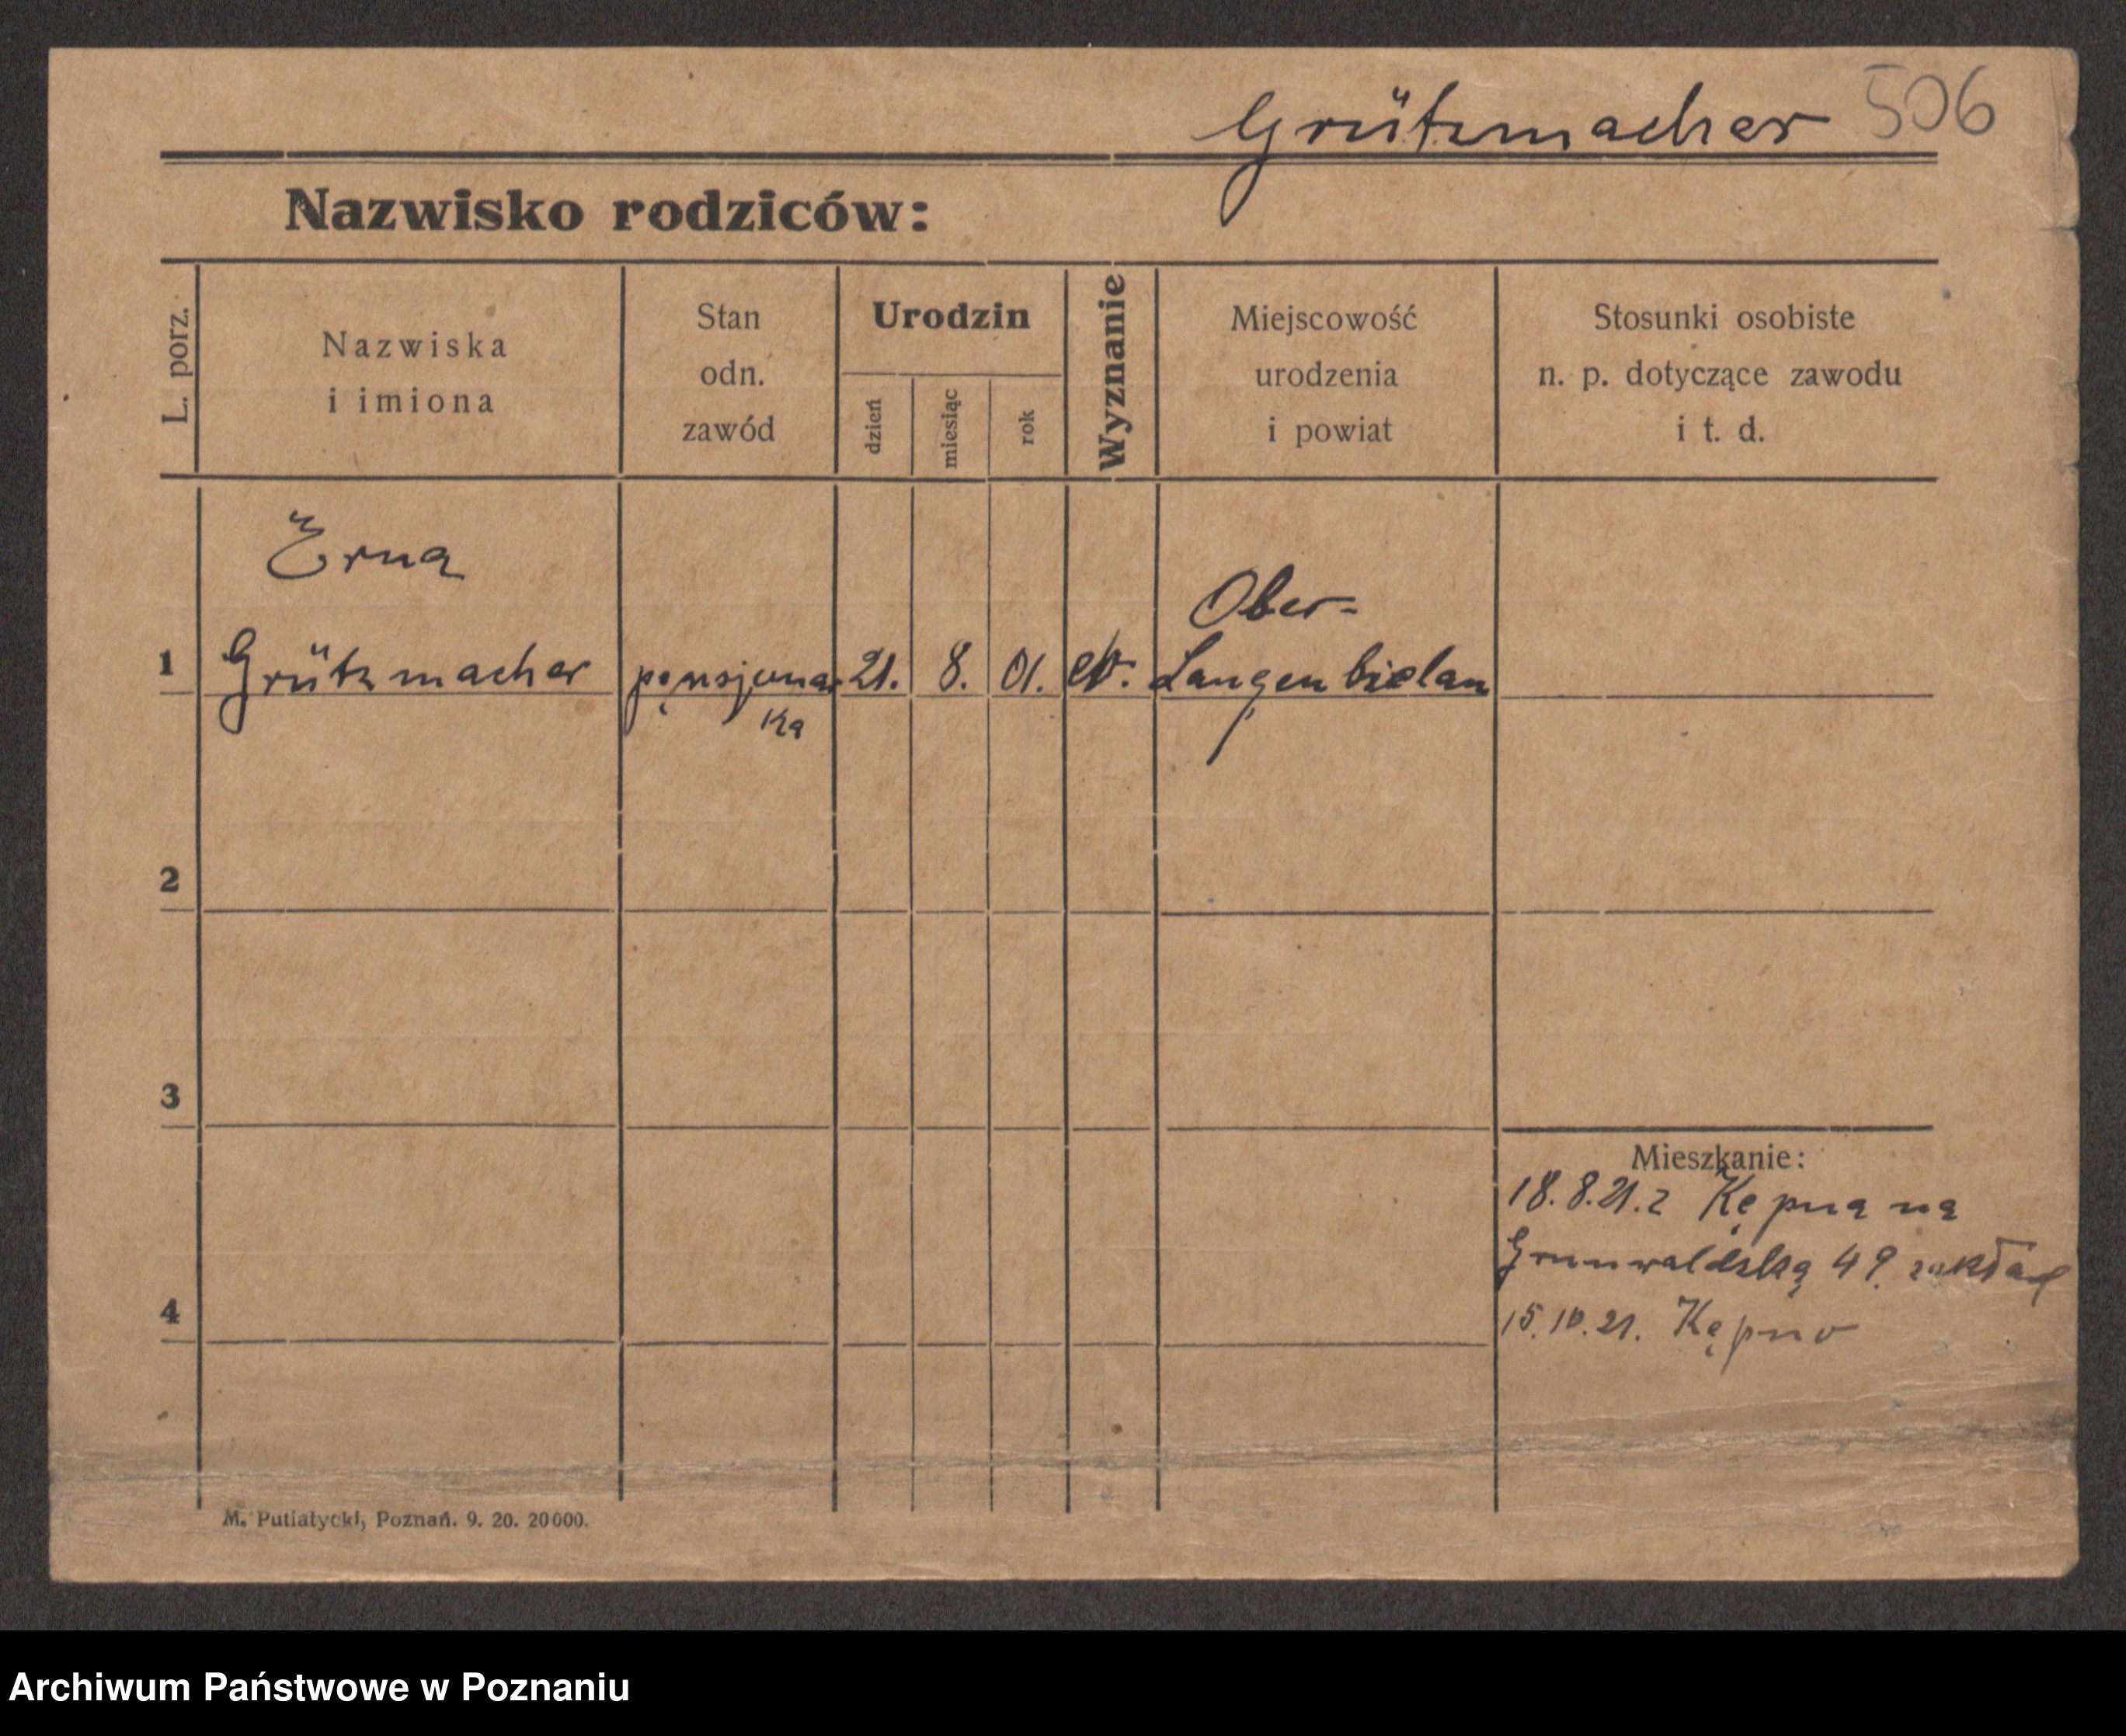 Grützmacher 506
Nazwisko rodziców:
L. porz.
Nazwiska
i imiona
Stan
odn.
zawód
Urodzin
dzień
miesiąc
rok
Wyznanie
Miejscowość
urodzenia
i powiat
Stosunki osobiste
n. p. dotyczące zawodu
i t. d.
Erna
Ober-
1 Grützmacher pensjonar 21. 8. 01. ev. Langenbielau
ka
2
3
Mieszkanie:
18.8.21. z Kępna na
Grunwaldską 49. zakład
4
15.10.21. Kępno
M. Putiatycki, Poznań. 9. 20. 20000.
Archiwum Państwowe w Poznaniu